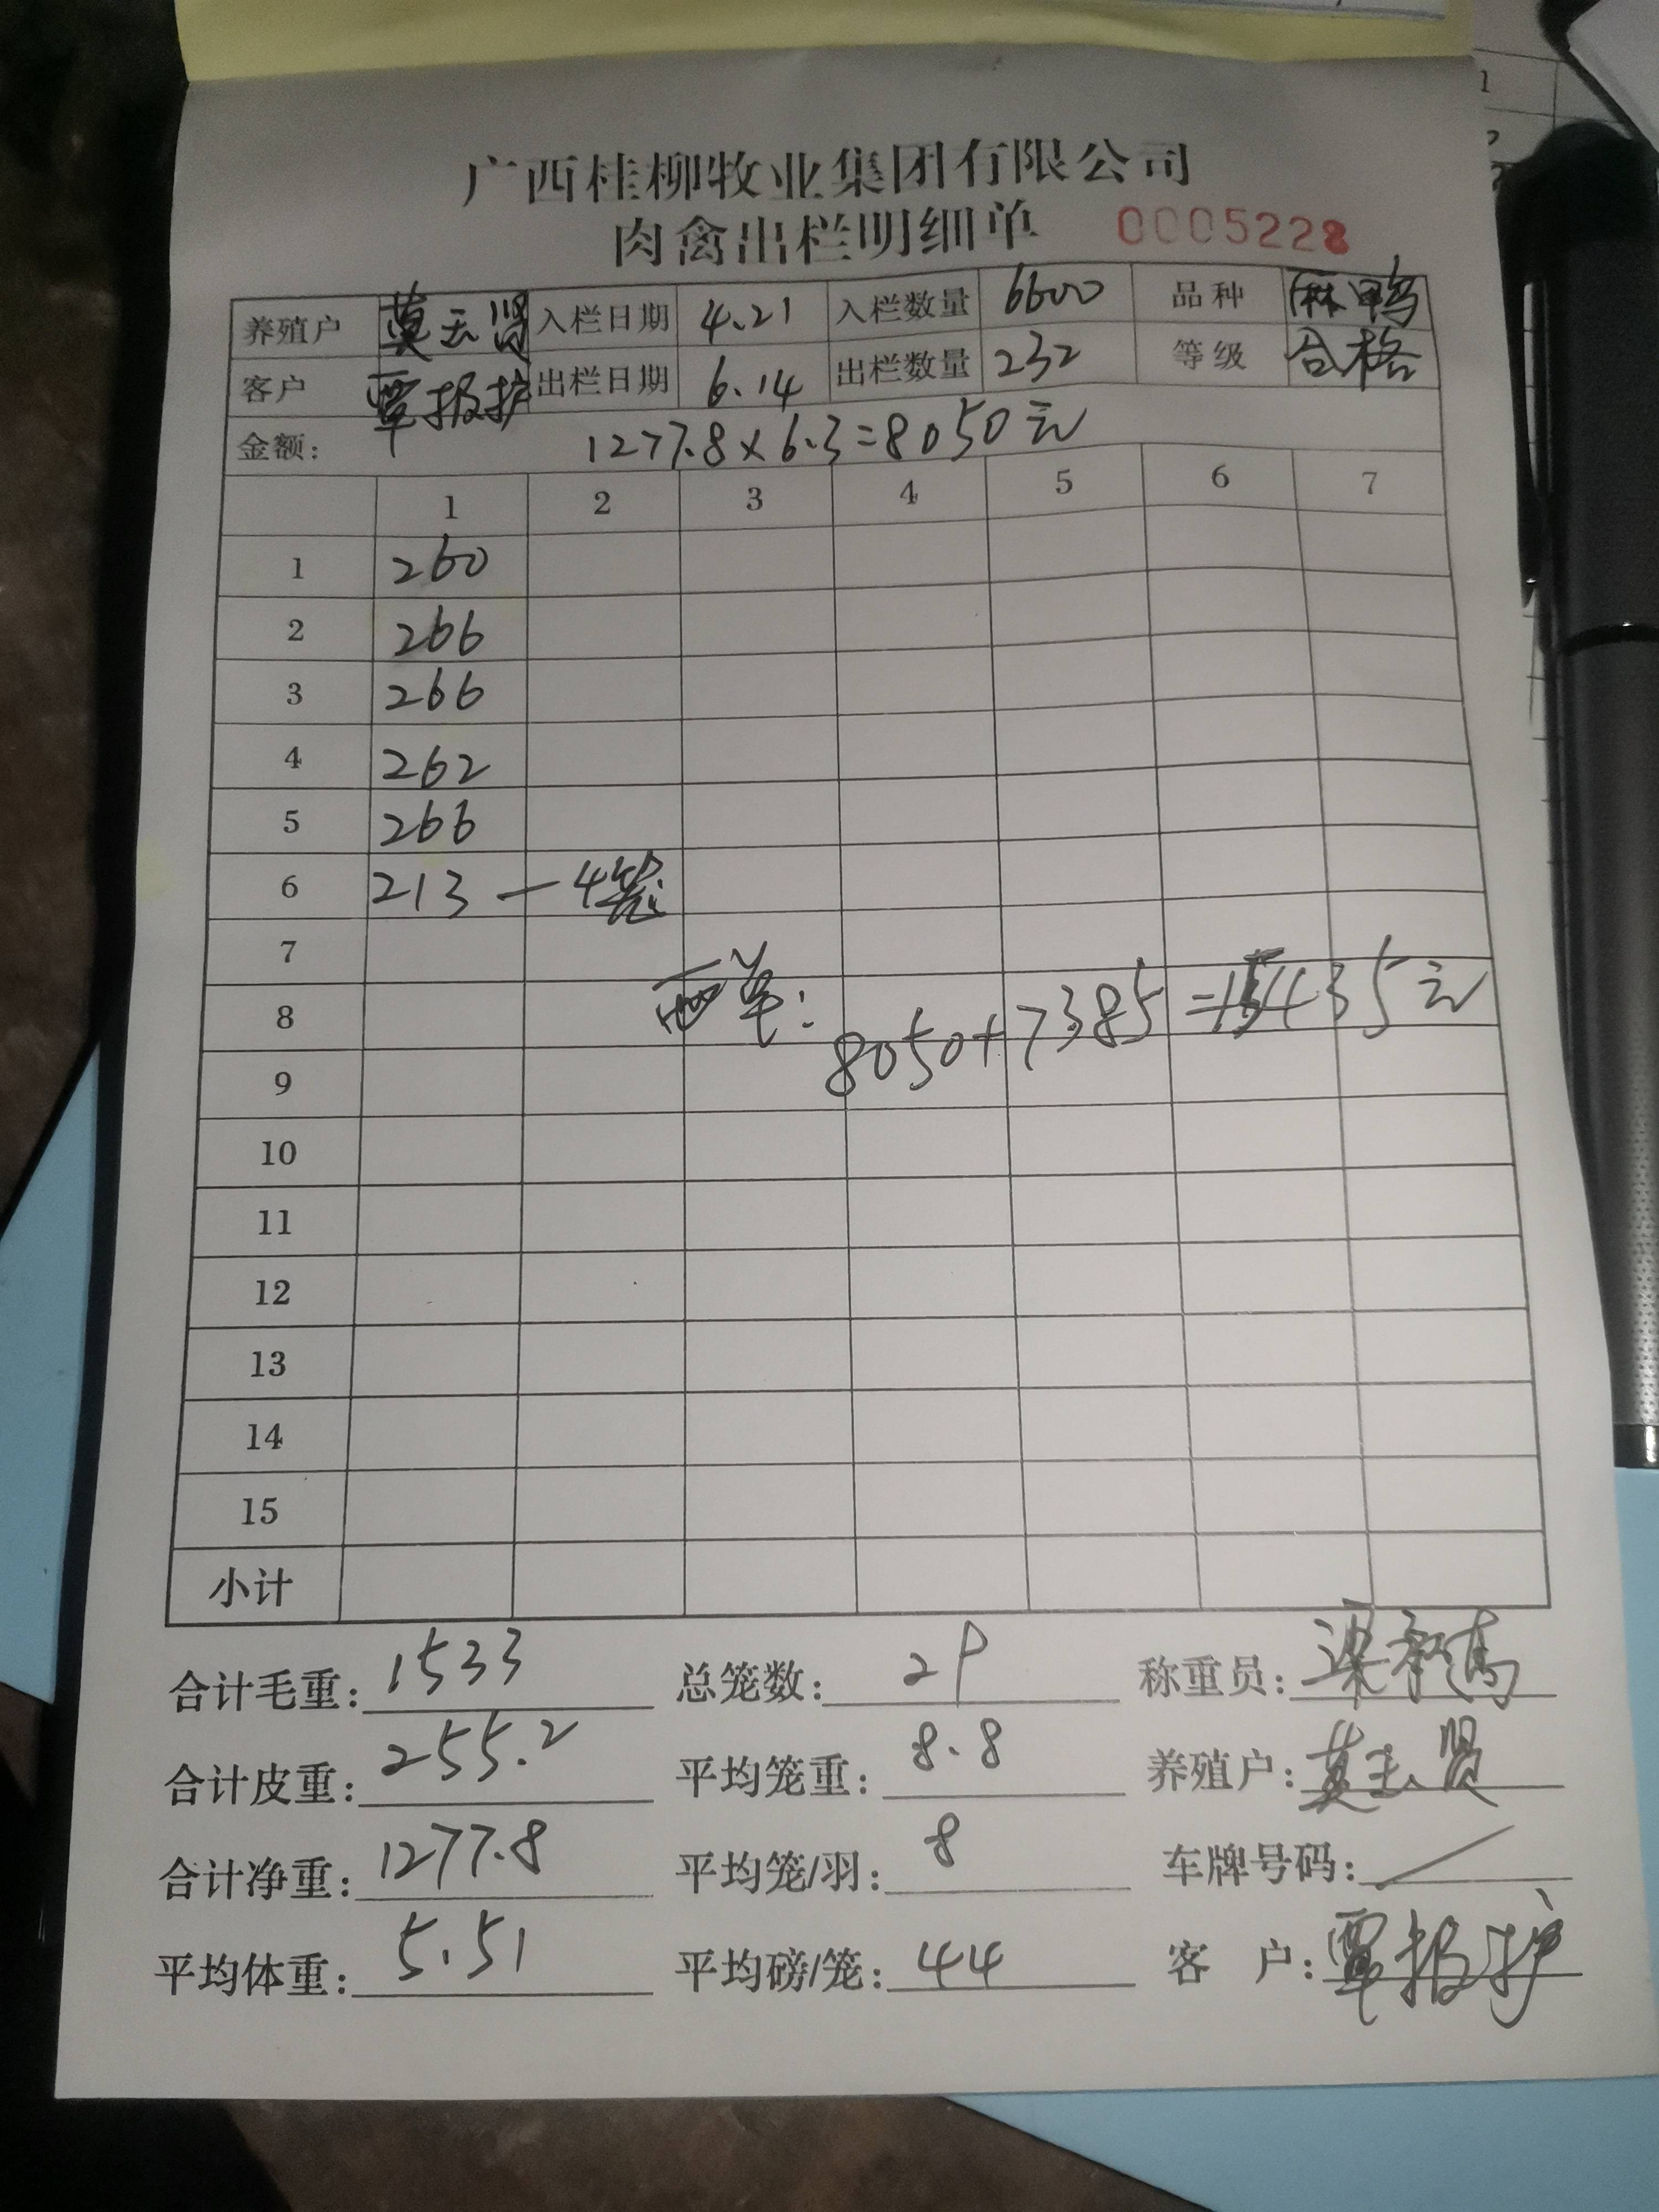 广西桂柳牧业集团有限公司
肉禽出栏明细单 0005228
养殖户 莫玉贤 入栏日期 4.21 入栏数量 6600 品种 麻鸭
客户 覃报护 出栏日期 6.14 出栏数量 232 等级 合格
金额: 1277.8×6.3=8050元
1 2 3 4 5 6 7
1 260
2 266
3 266
4 262
5 266
6 213 — 4笼
7
8 两单: 8050+7385=15435元
9
10
11
12
13
14
15
小计
合计毛重: 1533 总笼数: 29 称重员: 梁
合计皮重: 255.2 平均笼重: 8.8 养殖户: 莫玉贤
合计净重: 1277.8 平均笼/羽: 8 车牌号码: /
平均体重: 5.51 平均磅/笼: 44 客 户: 覃报护